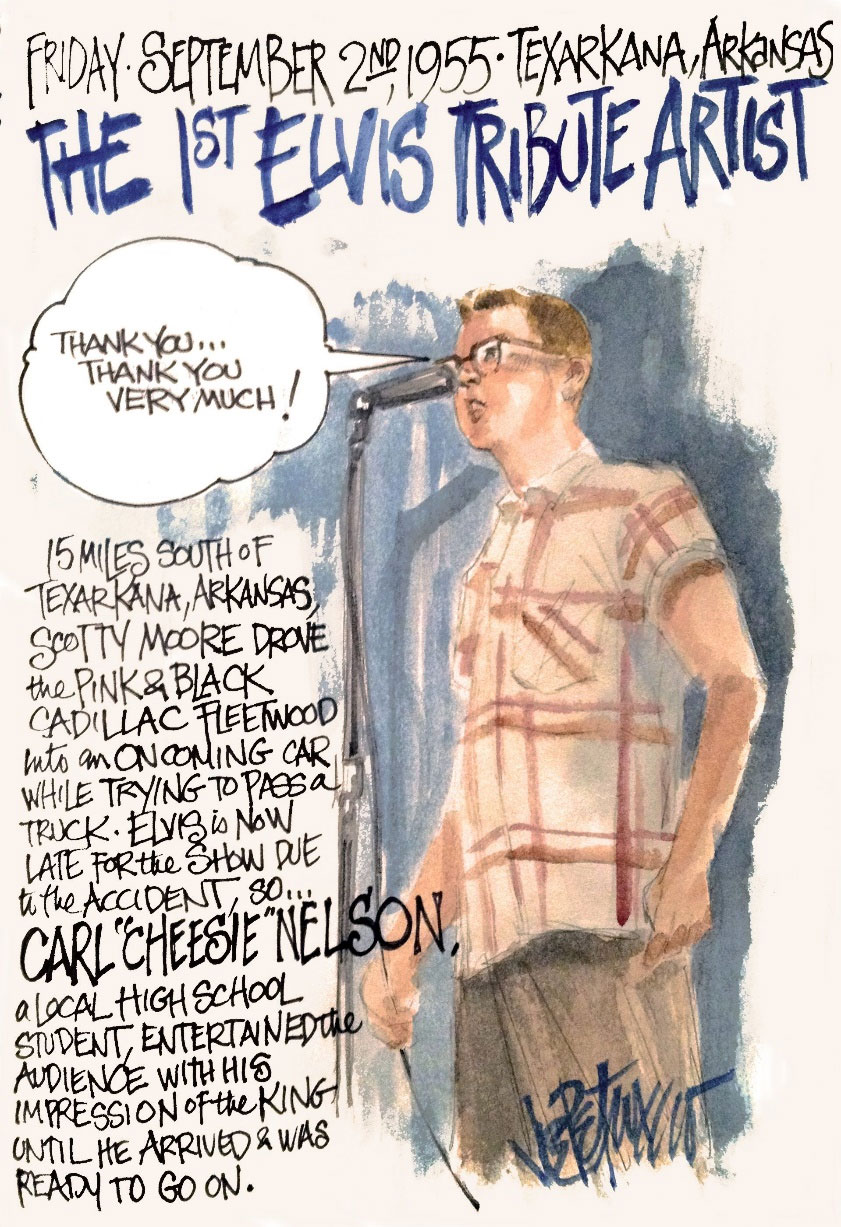 FRIDAY · SEPTEMBER 2ND, 1955 · TEXARKANA, ARKANSAS
THE 1ST ELVIS TRIBUTE ARTIST
THANK YOU...
THANK YOU
VERY MUCH!
15 MILES SOUTH OF
TEXARKANA, ARKANSAS,
SCOTTY MOORE DROVE
the PINK & BLACK
CADILLAC FLEETWOOD
into an ONCOMING CAR
WHILE TRYING TO PASS a
TRUCK. ELVIS is NOW
LATE FOR the SHOW DUE
to the ACCIDENT, SO...
CARL "CHEESIE" NELSON,
a LOCAL HIGH SCHOOL
STUDENT, ENTERTAINED the
AUDIENCE WITH HIS
IMPRESSION of the KING
UNTIL HE ARRIVED & WAS
READY TO GO ON.